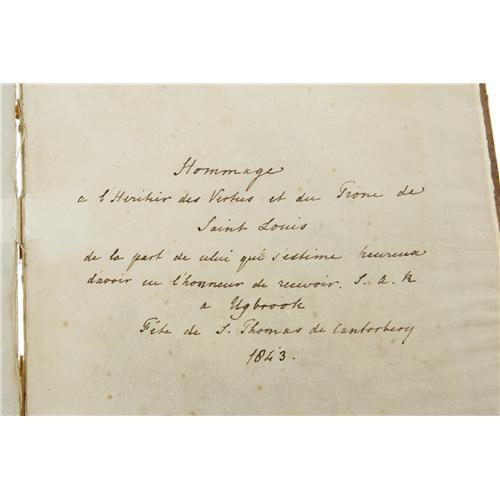 Hommage
a l'Heritier des Vertus et du Trone de
Saint Louis
de la part de celui qui s'estime heureux
d'avoir eu l'honneur de recevoir. S. A. R
a Ugbrook
Fête de S. Thomas de Cantorbery
1843.